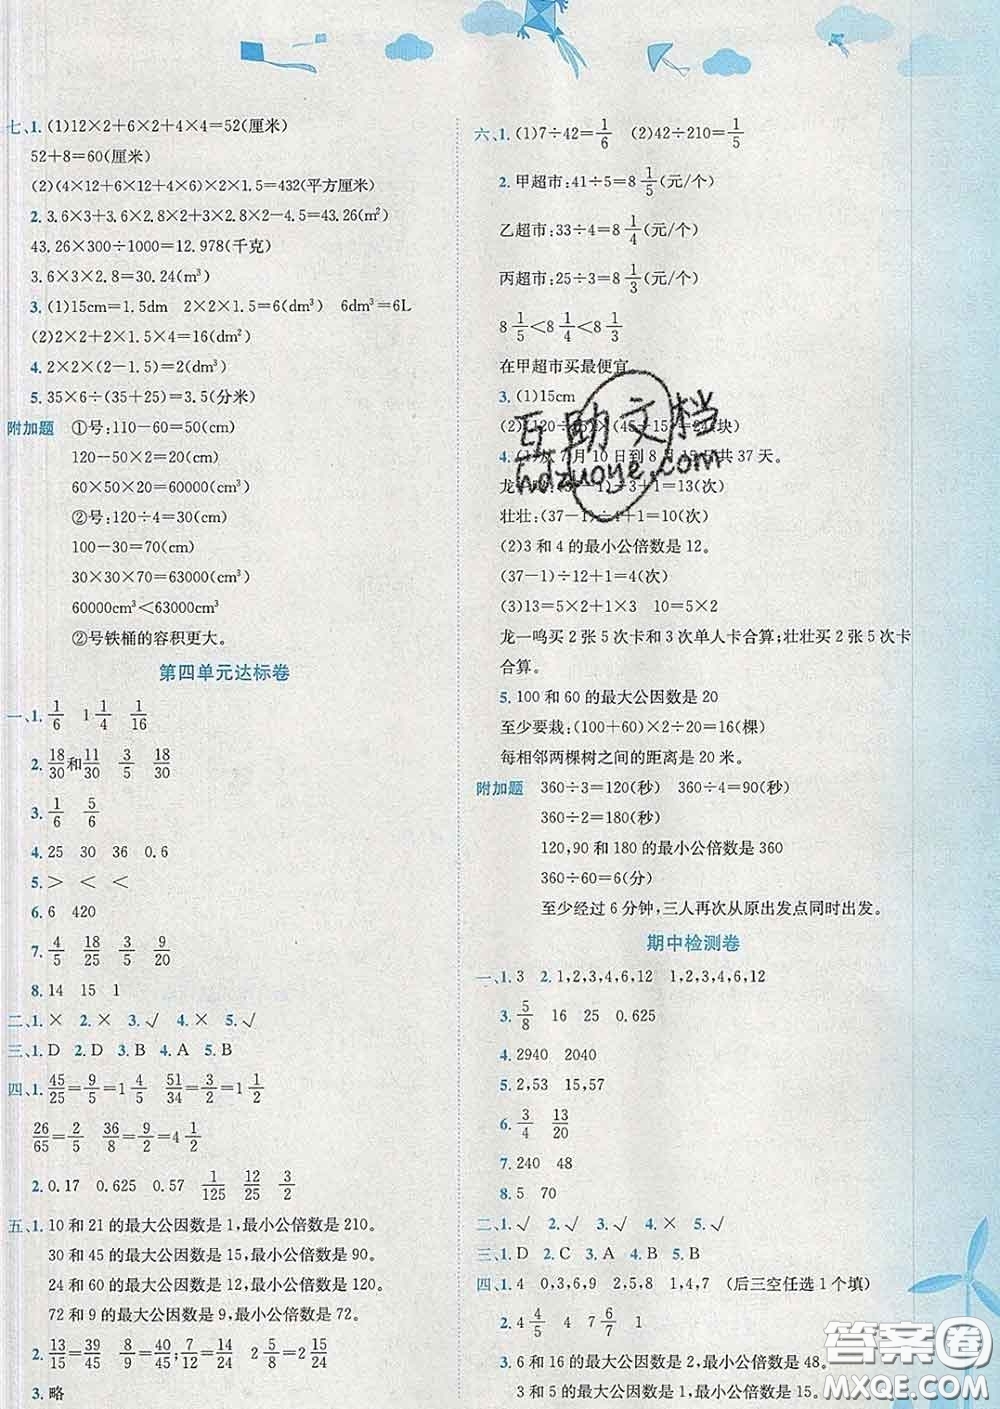 七、1. (1)12×2+6×2+4×4=52(厘米)
52+8=60(厘米)
(2)(4×12+6×12+4×6)×2×1.5=432(平方厘米)
2. 3.6×3+3.6×2.8×2+3×2.8×2-4.5=43.26(m²)
43.26×300÷1000=12.978(千克)
3.6×3×2.8=30.24(m³)
3. (1)15cm=1.5dm 2×2×1.5=6(dm³) 6dm³=6L
(2)2×2+2×1.5×4=16(dm²)
4. 2×2×(2-1.5)=2(dm³)
5. 35×6÷(35+25)=3.5(分米)
附加题 ①号:110-60=50(cm)
120-50×2=20(cm)
60×50×20=60000(cm³)
②号:120÷4=30(cm)
100-30=70(cm)
30×30×70=63000(cm³)
60000cm³<63000cm³
②号铁桶的容积更大。
第四单元达标卷
一、1. 1/6 1 1/4 1/16
2. 18/30和11/30 3/5 18/30
3. 1/6 5/6
4. 25 30 36 0.6
5. > < <
6. 6 420
7. 4/5 18/25 3/5 9/20
8. 14 15 1
二、1. × 2. × 3. √ 4. × 5. √
三、1. D 2. D 3. B 4. A 5. B
四、1. 45/25=9/5=1 4/5 51/34=3/2=1 1/2
26/65=2/5 36/8=9/2=4 1/2
2. 0.17 0.625 0.57 1/125 12/25 3/2
五、1. 10 和 21 的最大公因数是 1,最小公倍数是 210。
30 和 45 的最大公因数是 15,最小公倍数是 90。
24 和 60 的最大公因数是 12,最小公倍数是 120。
72 和 9 的最大公因数是 9,最小公倍数是 72。
2. 13/15=39/45 8/9=40/45; 7/12=14/24 2 5/8=2
3. 略
六、1. (1)7÷42=1/6 (2)42÷210=1/5
2. 甲超市:41÷5=8 1/5(元/个)
乙超市:33÷4=8 1/4(元/个)
丙超市:25÷3=8 1/3(元/个)
8 1/5<8 1/4<8 1/3
在甲超市买最便宜
3. (1)15cm
(2)(120÷15)×(45÷15)=24(块)
4. (1)从 7 月 10 日到 8 月 15 日共 37 天。
龙一鸣:(37-1)÷3+1=13(次)
壮壮:(37-1)÷4+1=10(次)
(2)3 和 4 的最小公倍数是 12。
(37-1)÷12+1=4(次)
(3)13=5×2+1×3 10=5×2
龙一鸣买 2 张 5 次卡和 3 次单人卡合算;壮壮买 2 张 5 次卡
合算。
5. 100 和 60 的最大公因数是 20
至少要栽:(100+60)×2÷20=16(棵)
每相邻两棵树之间的距离是 20 米。
附加题 360÷3=120(秒) 360÷4=90(秒)
360÷2=180(秒)
120,90 和 180 的最小公倍数是 360
360÷60=6(分)
至少经过 6 分钟,三人再次从原出发点同时出发。
期中检测卷
一、1. 3 2. 1,2,3,4,6,12 1,2,3,4,6,12
3. 5/8 16 25 0.625
4. 2940 2040
5. 2,53 15,57
6. 3/4 13/20
7. 240 48
8. 5 70
二、1. √ 2. √ 3. √ 4. √ 5. √
三、1. D 2. C 3. A 4. B 5. C
四、1. 4 0,3,6,9 2,5,8 1,4,7 (后三空任选 1 个填)
2. 4 4/5 4 7 6/7 1
3. 6 和 16 的最大公因数是 2,最小公倍数是 48。
3 和 5 的最大公因数是 1,最小公倍数是 15。
互助文档
hdzuoye.com
答案圈
MXQE.COM